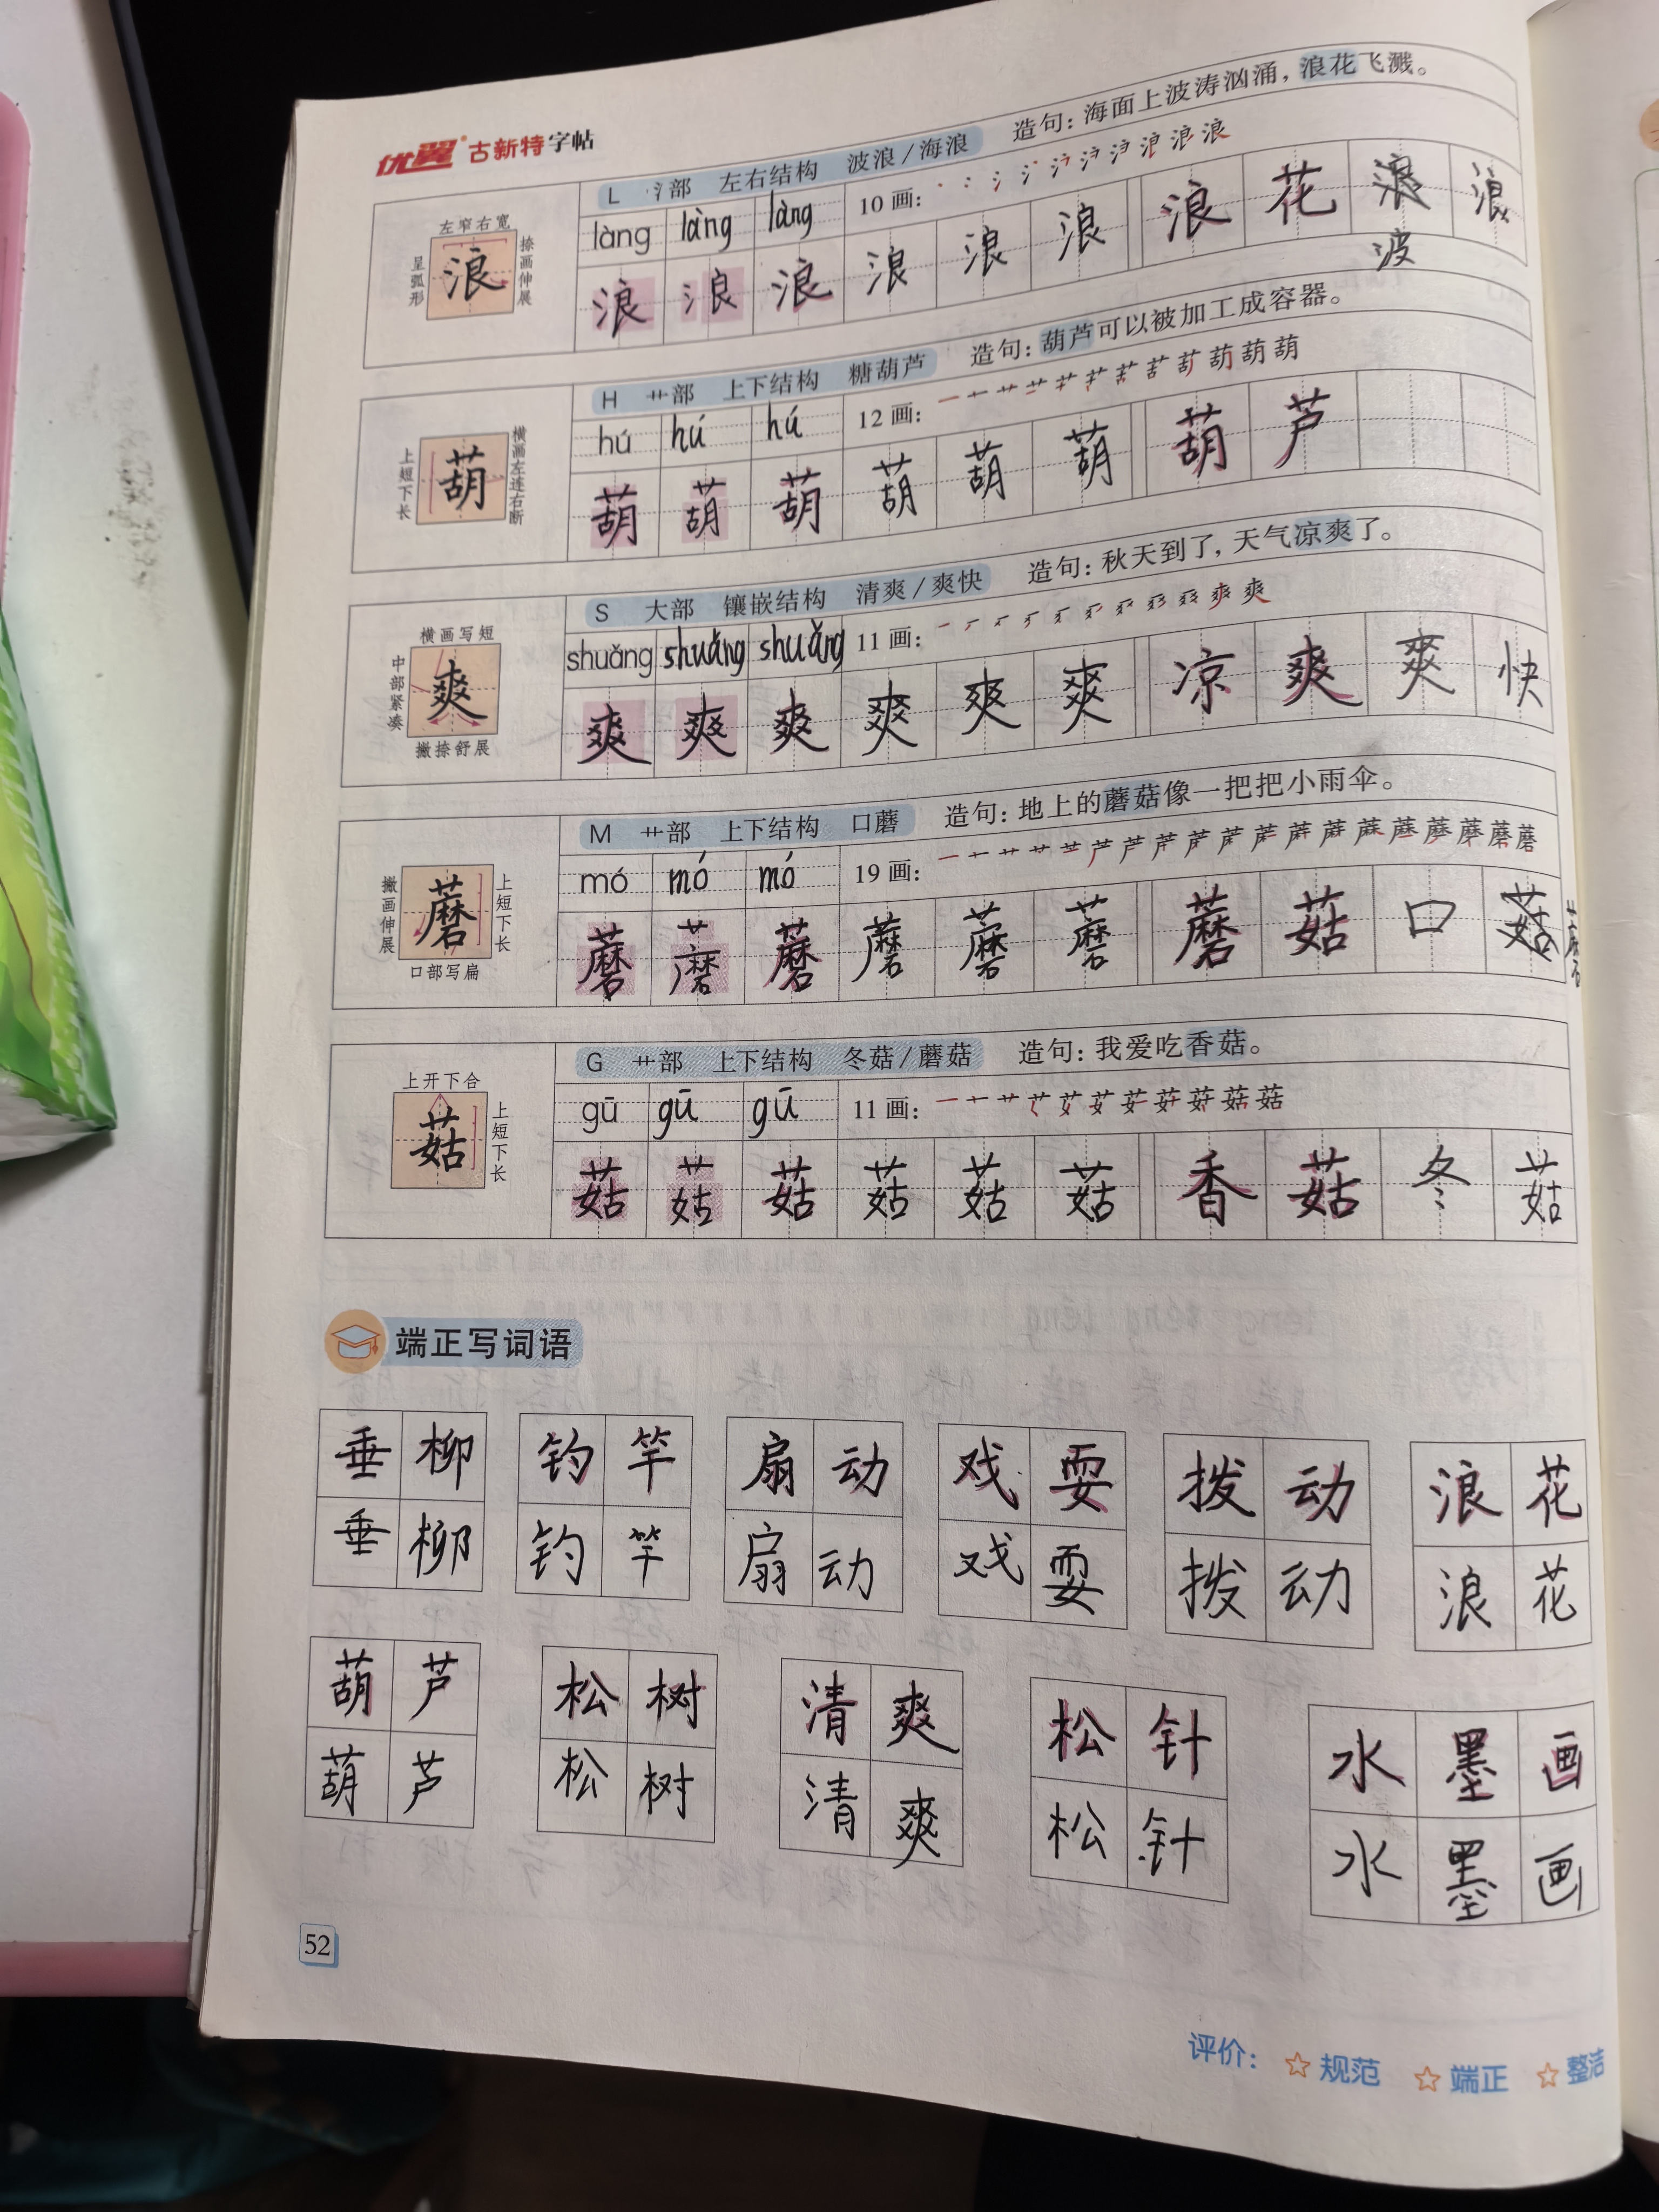 优翼 古新特字帖
L 氵部 左右结构 波浪/海浪 造句：海面上波涛汹涌，浪花飞溅。
左窄右宽
呈弧形
捺画伸展
浪
làng làng làng 10画：
浪 浪 浪 浪 浪 浪 浪 花 浪 浪
波
H 艹部 上下结构 糖葫芦 造句：葫芦可以被加工成容器。
上短下长
横画左连右断
葫
hú hú hú 12画：
葫 葫 葫 葫 葫 葫 葫 芦
S 大部 镶嵌结构 清爽/爽快 造句：秋天到了，天气凉爽了。
横画写短
中部紧凑
撇捺舒展
爽
shuǎng shuǎng shuǎng 11画：
爽 爽 爽 爽 爽 爽 凉 爽 爽 快
M 艹部 上下结构 口蘑 造句：地上的蘑菇像一把把小雨伞。
撇画伸展
上短下长
口部写扁
蘑
mó mó mó 19画：
蘑 蘑 蘑 蘑 蘑 蘑 蘑 菇 口 菇 蘑
G 艹部 上下结构 冬菇/蘑菇 造句：我爱吃香菇。
上开下合
上短下长
菇
gū gū gū 11画：
菇 菇 菇 菇 菇 菇 香 菇 冬 菇
端正写词语
垂柳 钓竿 扇动 戏耍 拨动 浪花
垂柳 钓竿 扇动 戏耍 拨动 浪花
葫芦 松树 清爽 松针 水墨画
葫芦 松树 清爽 松针 水墨画
52
评价： ☆规范 ☆端正 ☆整洁